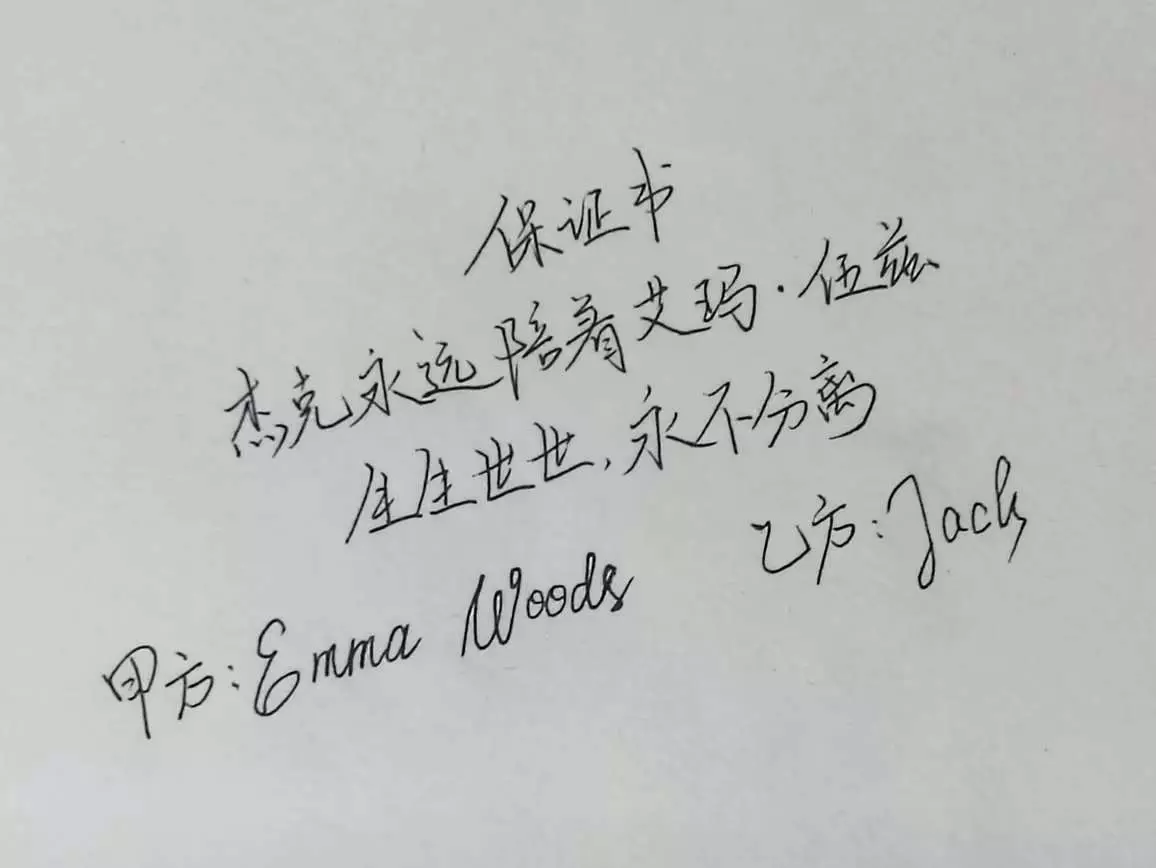 保证书
杰克永远陪着艾玛·伍兹
生生世世,永不分离
乙方:Jack
甲方:Emma Woods